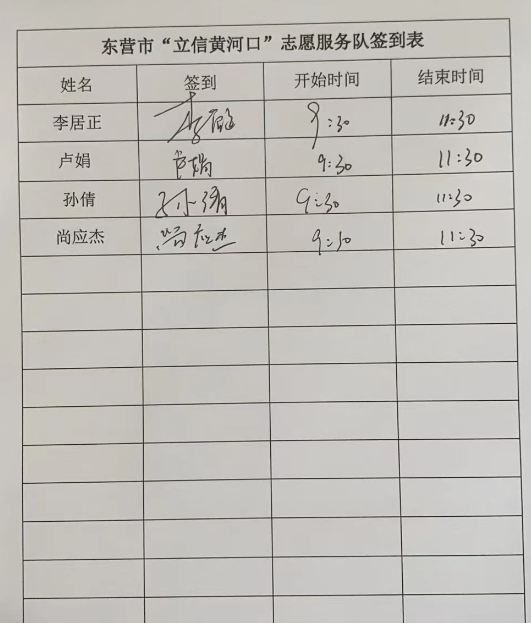 东营市“立信黄河口”志愿服务队签到表
姓名 签到 开始时间 结束时间
李居正 李居正 9:30 11:30
卢娟 卢娟 9:30 11:30
孙倩 孙倩 9:30 11:30
尚应杰 尚应杰 9:30 11:30